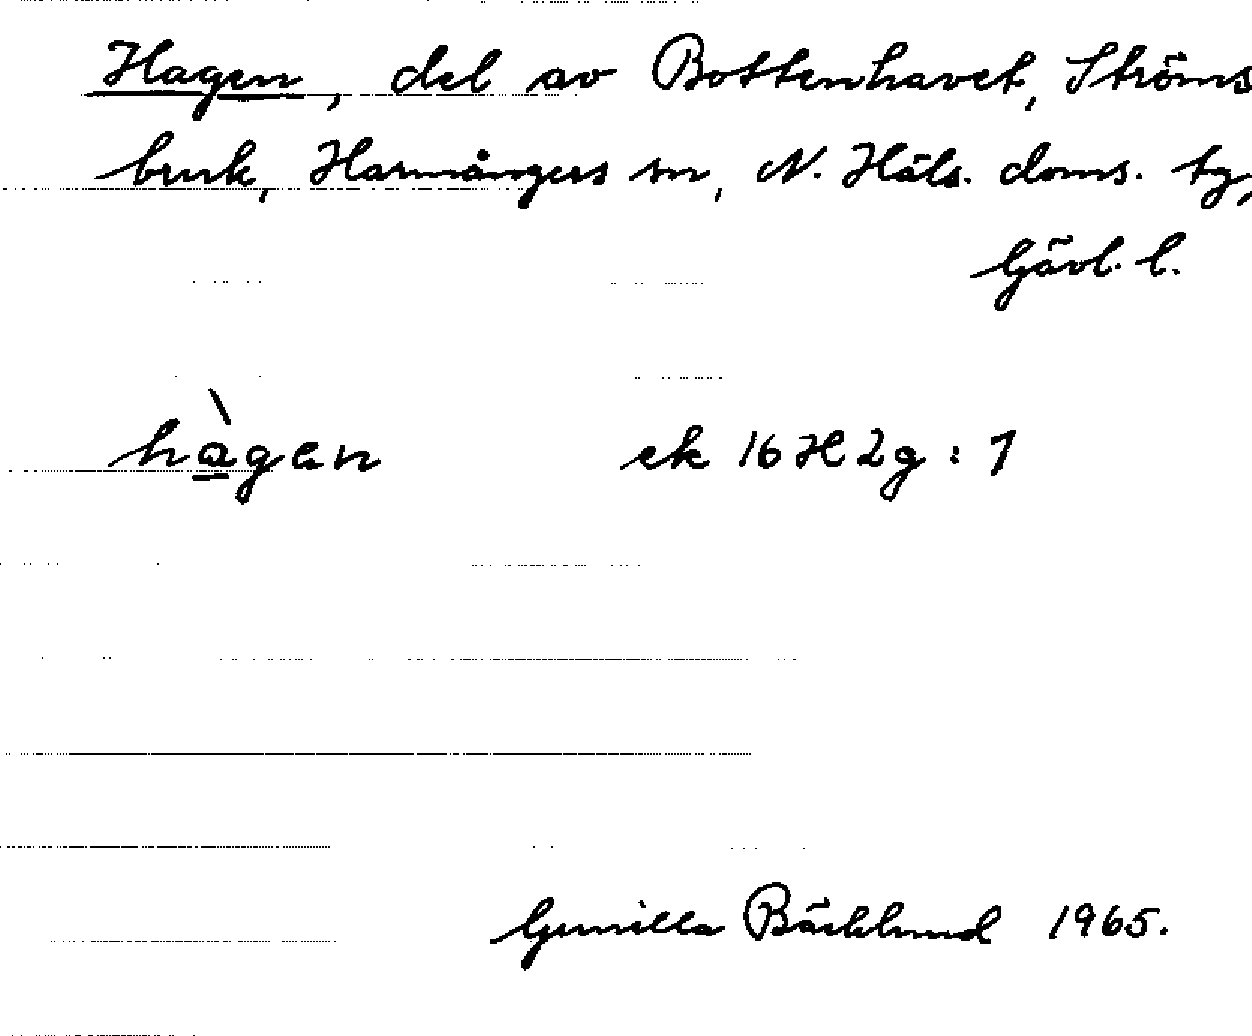 Hagen, del av Bottenhavet, Ströms
bruk, Harmångers sn, N. Häls. doms. tg,
Gävl. l.
hàgen ek 16H2g:1
Gunilla Bäcklund 1965.